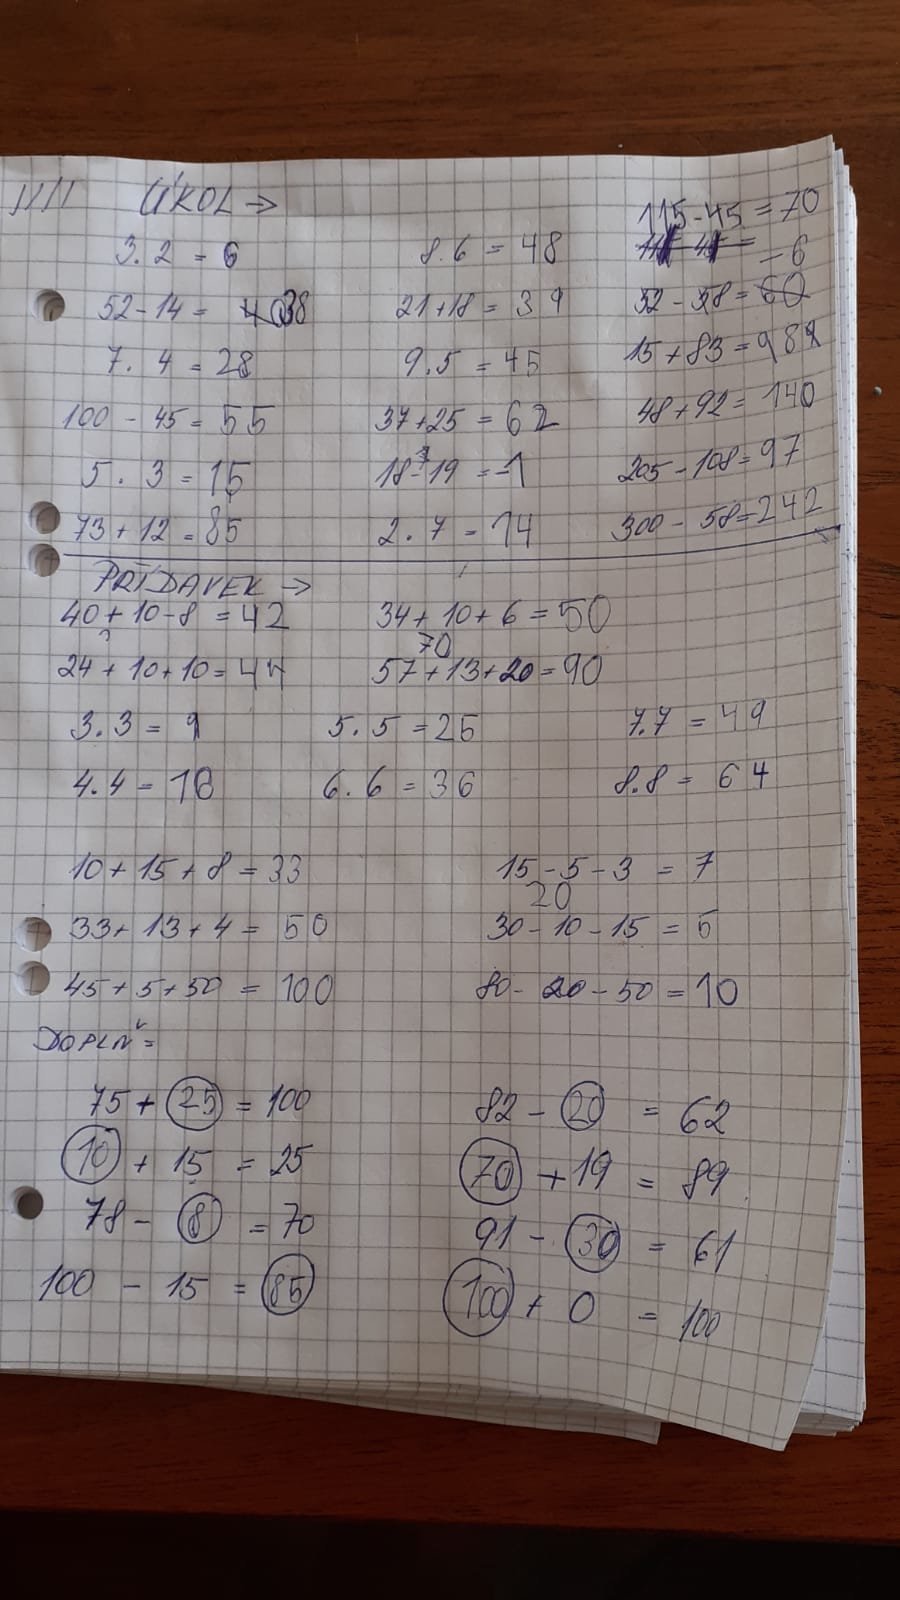 ÚKOL →
115-45 = 70
3.2 = 6 8.6 = 48
-6
52-14 = 38 21+18 = 39 52-58 = 60
7.4 = 28 9.5 = 45 15+83 = 98
100 - 45 = 55 37+25 = 62 48+92 = 140
5.3 = 15 18-19 = -1 205-108 = 97
73+12 = 85 2.7 = 14 300-58 = 242
PŘÍDAVEK →
40+10-8 = 42 34+10+6 = 50
70
24+10+10 = 44 57+13+20 = 90
3.3 = 9 5.5 = 25 7.7 = 49
4.4 = 16 6.6 = 36 8.8 = 64
10+15+8 = 33 15-5-3 = 7
20
33+13+4 = 50 30-10-15 = 5
45+5+50 = 100 80-20-50 = 10
DOPLŇ =
75 + 25 = 100 82 - 20 = 62
10 + 15 = 25 70 + 19 = 89
78 - 8 = 70 91 - 30 = 61
100 - 15 = 85 100 + 0 = 100